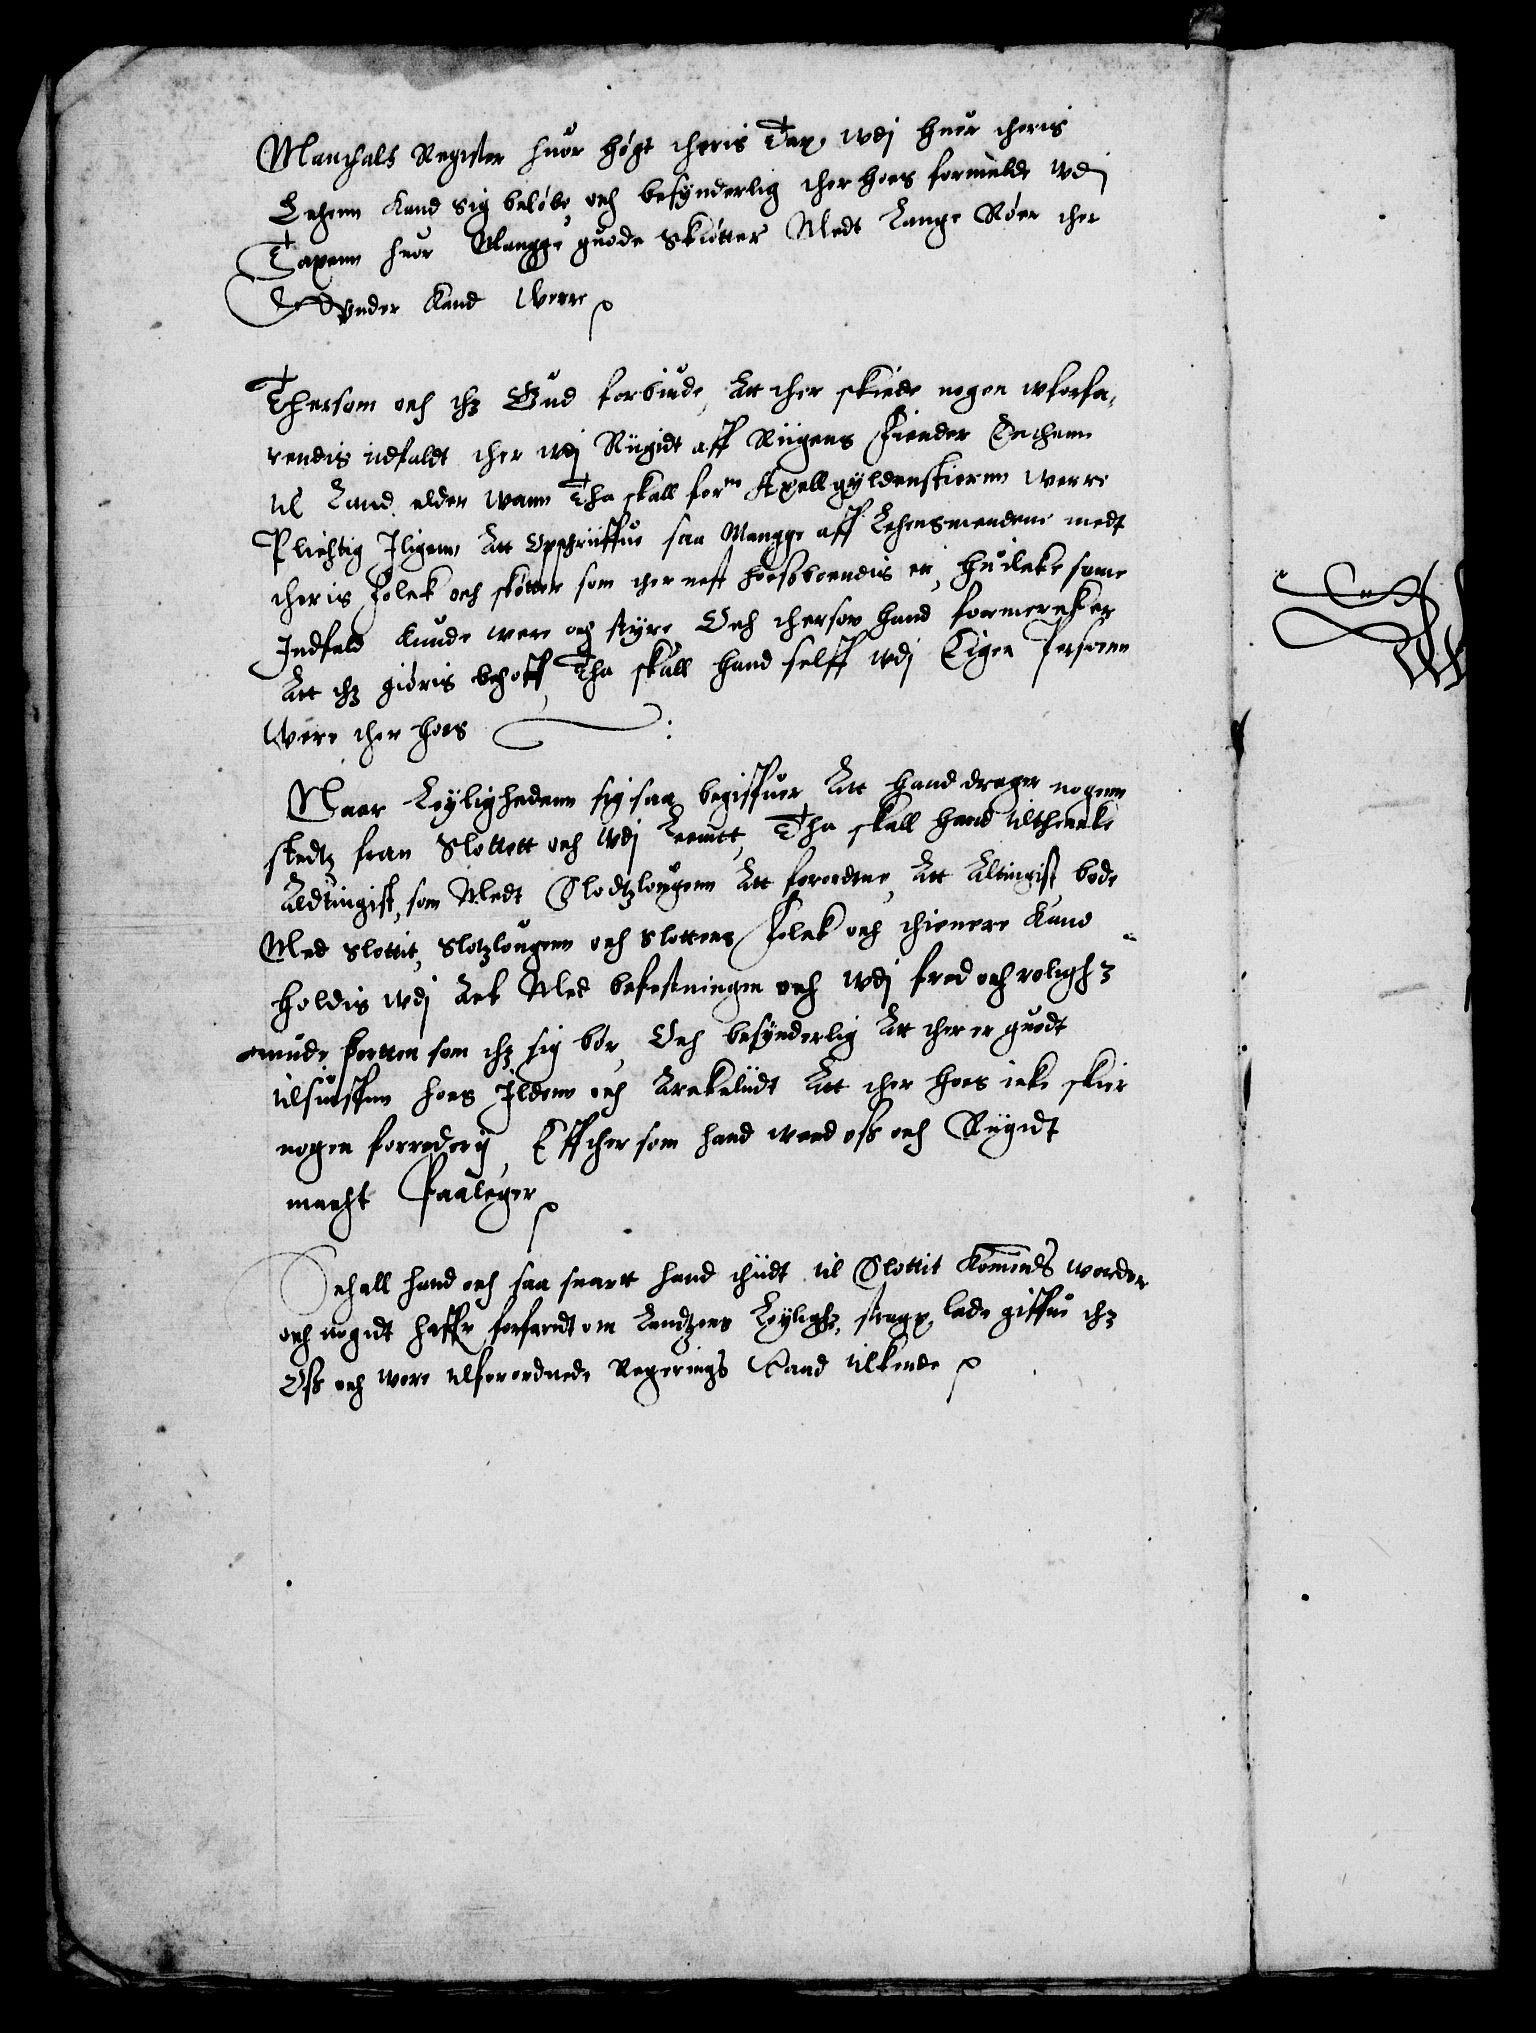 Manthals Register huor høgt theris Tax wdj huer theris
Lehenn kand sig beløbe, och besynderlig ther hoes formelde wdj
Taxenn huor Mangge guode skiøtter Medt Lange Rør ther
Wnder kand Werre
Thersom och thz Gud forbiude, Att ther skiede nogen wforfa,
rendis indfaldt ther wdj Riigidt aff Riigens Fiender Enthenn
til Land elder wann Tha skall for^ne Axell gyldenstiernn werre
Plichtig Jligenn Att Opschriffue saa Mangge aff Lehensmendene medt
theris Folck och skøtter som ther nest hoesboendis er, Huilcke same
Indfald kunde were och styre Och thersom hand formercker
Att thz giøris behoff, Tha skall hand selff wdj Eigen Persoenn
Were ther hoes
Naar Leylighedenn sig saa begiffuer Att hand drager nogenn
stedtz fran Slottett och wdj Leenitt, Tha skall hand tiltencke
Aldtingist, som Medt Slodtzlougenn Att forordtne, Att Altingist bode
Med Slottit, Slotzlougenn och Slottens Folck och thienere kand
holdis wdj Act Med befestningen och wdj fred och roligh3
inude portten som thz sig bør, Och besynderlig Att ther er guodt
tilsiuffnn hoes Ildenn och krakeliidt Att ther hoes icke skier
nogen forrederij, Effthersom hand waed oss och Riigidt
macht Paaleger
Schall hand och saa snartt hand thiidt til Slottit kommends worder
och nogidt haffr forfaridt om Landtzens Leyligh3, strax lade giffue thz
Oss och wore tilforordnede Regerings Raad tilkende